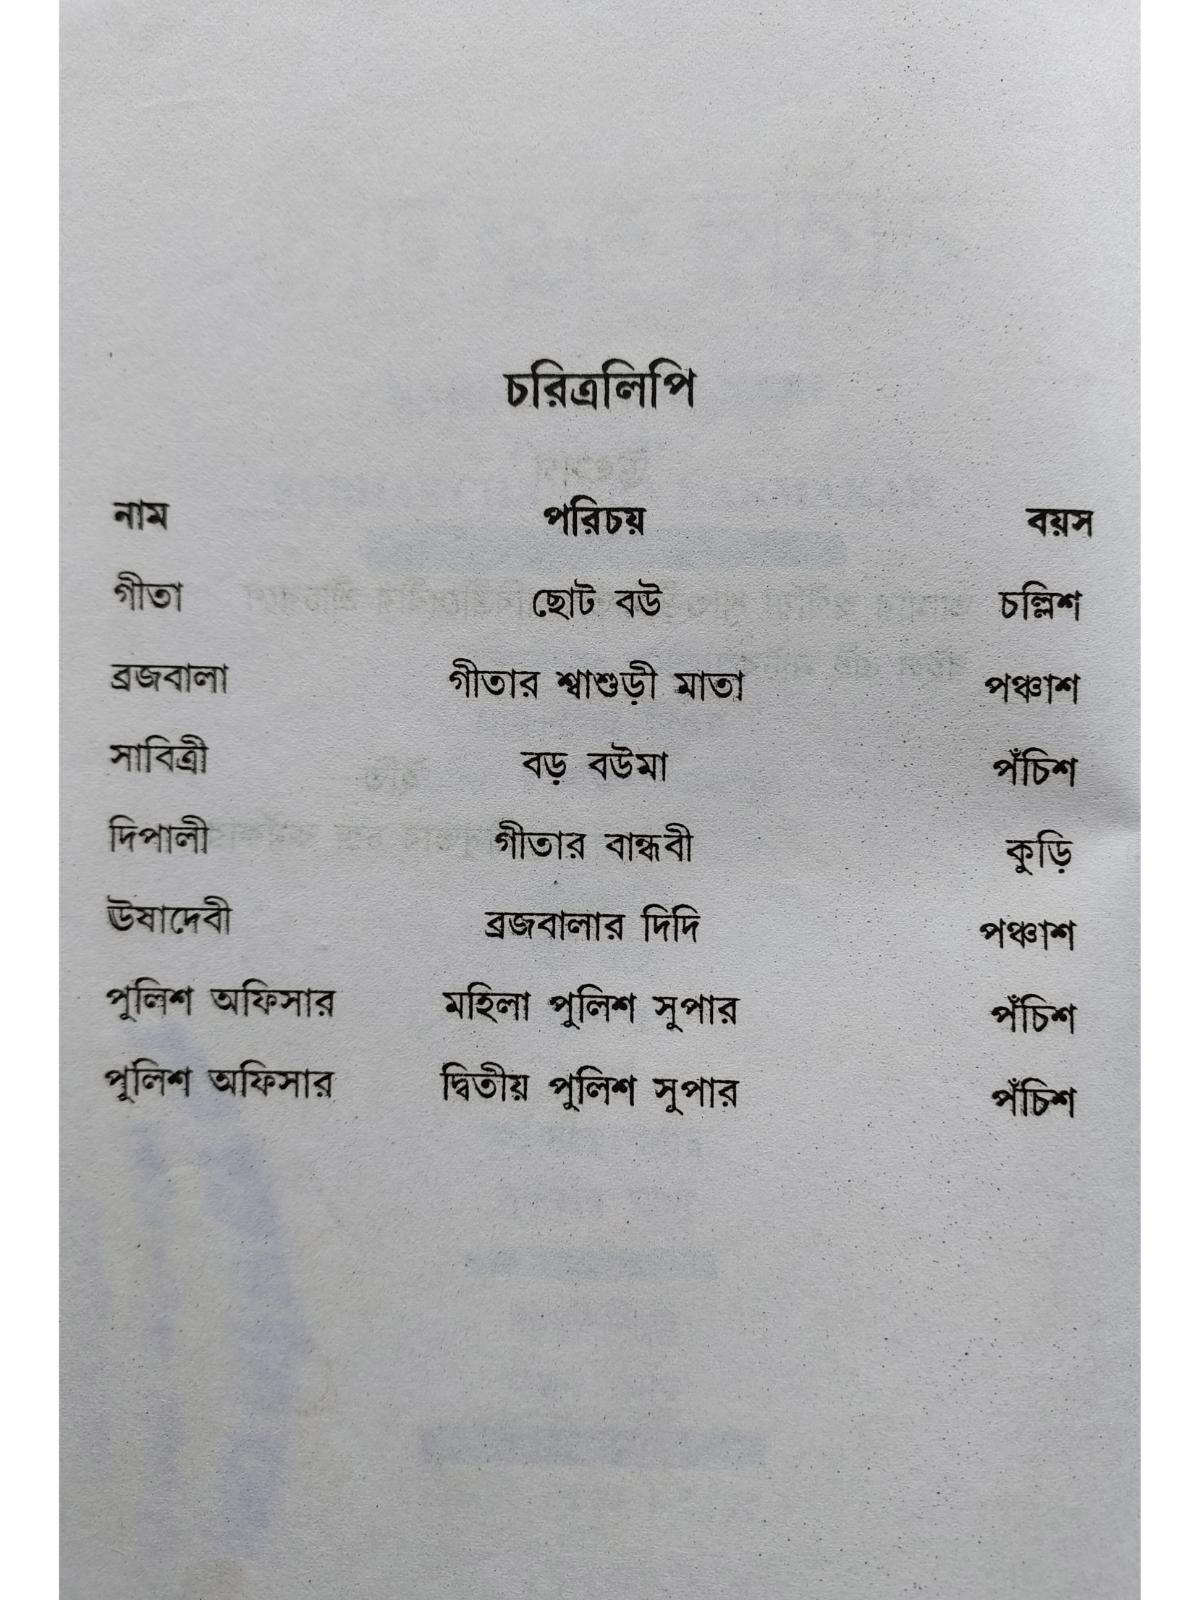 চরিত্রলিপি
নাম পরিচয় বয়স
গীতা ছোট বউ চল্লিশ
ব্রজবালা গীতার শ্বাশুড়ী মাতা পঞ্চাশ
সাবিত্রী বড় বউমা পঁচিশ
দিপালী গীতার বান্ধবী কুড়ি
ঊষাদেবী ব্রজবালার দিদি পঞ্চাশ
পুলিশ অফিসার মহিলা পুলিশ সুপার পঁচিশ
পুলিশ অফিসার দ্বিতীয় পুলিশ সুপার পঁচিশ